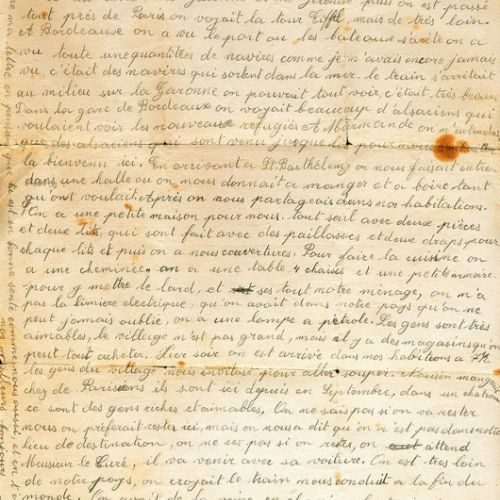 et Gironde puis on est passé
tout près de Paris on voyait la tour Eiffel, mais de très loin.
A Bordeause on a vu le port ou les bateaux s'arête on a
vu toute une quantitées de navires comme je n'avais encore jamais
vu, c'était des navires qui sortent dans la mer. le train s'arrêtait
au milieu sur la Garonne on pouvait tout voir, c'était très beau.
Dans la gare de Bordeause on voyait beaucoup d'alsaciens qui
voulaient voir les nouveaux refugiés A Marmande on n'
que des alsaciens qui sont venu jusque là pour nous
la bienvenu ici. En arrissant a St. Barthélemy on nous faisait entrer
dans une halle ou on nous donnait a manger et a boire tant
qu'ont voulait Après on nous partageais dans nos habitations.
On a une petite maison pour nous. tout seul avec deux pièces
et deux lits, qui sont fait avec des paillasses et deux draps pour
chaque lits et puis on a nous couvertures. Pour faire la cuisine on
a une cheminée, on a une table. 4 chaises et une petite armoire
pour y mettre le lard, et ses tout notre ménage, on m'a
pas la lumière électrique, qu'on avait dans notre pays qu'on ne
peut jamais oublié, on a une lampe a pétrole. Les gens sont très
aimables, le village n'est pas grand, mais il y a des magasins qu'on
peut tout acheter. Hier soir on est arrivé dans nos habitions a
les gens du village nous invitait pour aller souper. Maison mange
chez de Parisiens ils sont ici depuis en Septembre, dans un chateau
ce sont des gens riches et aimables, On ne sais pas si on va rester
nous on préferait rester ici, mais on nous a dit qu'on n'est pas dans notre
lieu de destination, on ne ses pas si on restes, on attend
Monsieur le Curé, il va venir avec sa voiture. On est très loin
de notre pays, on croyait le train nous conduit a la fin du
monde.